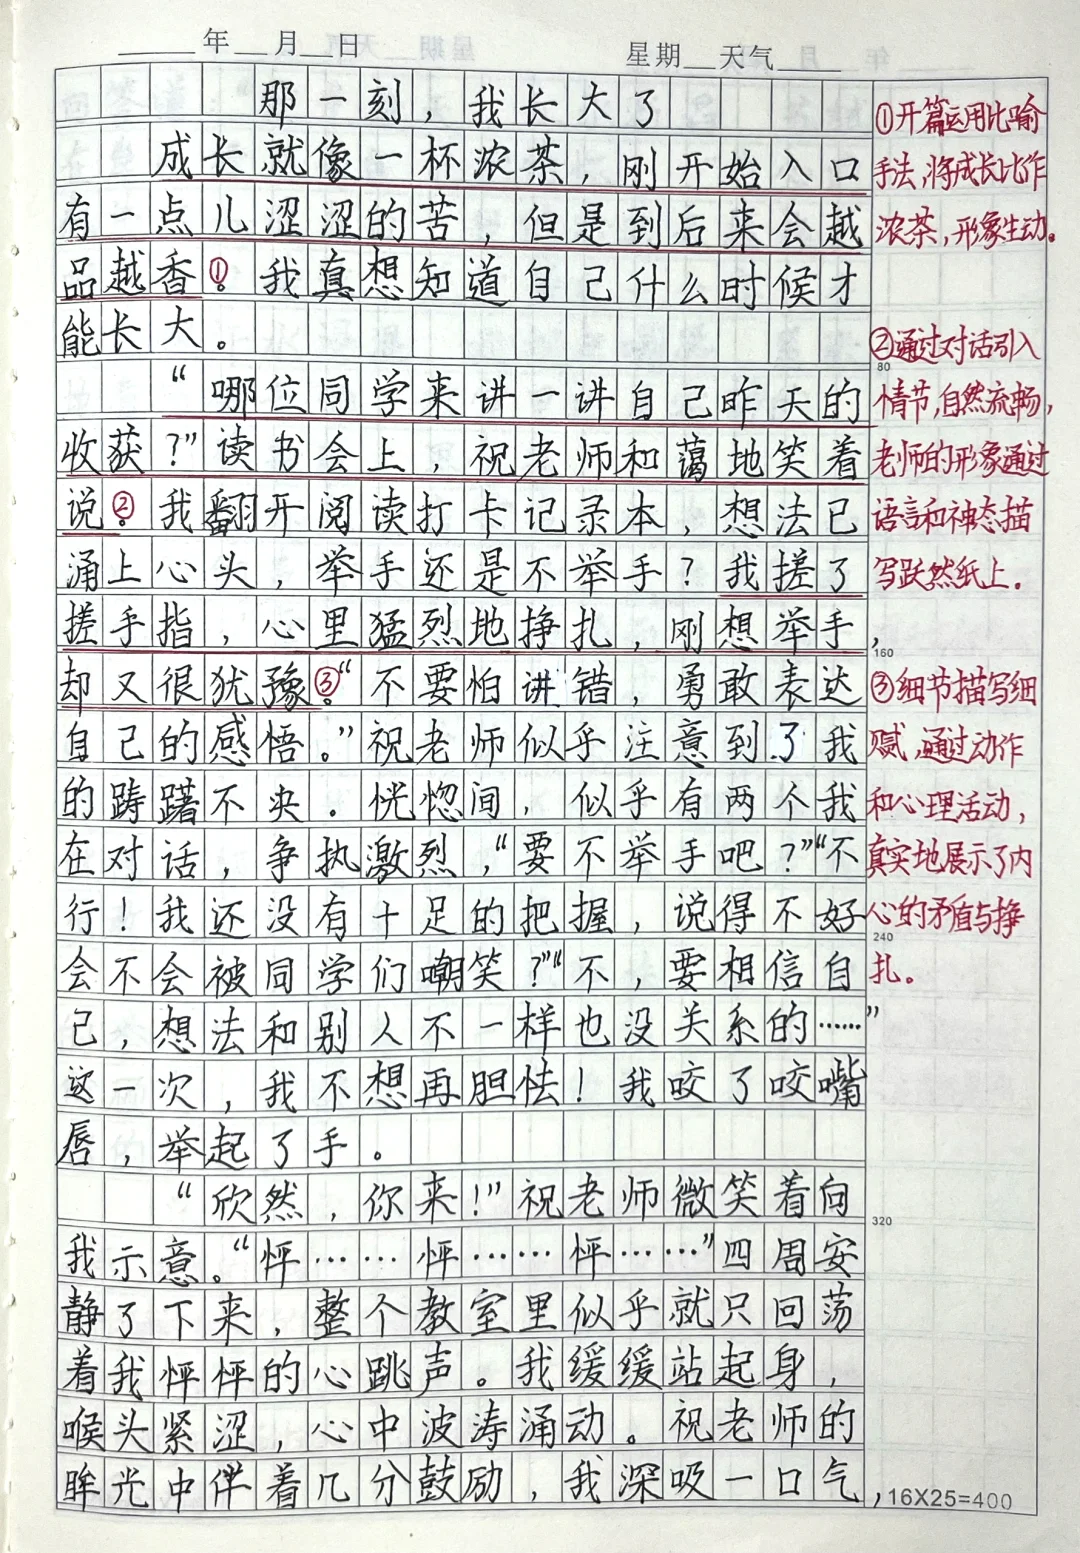 ____年__月__日 星期__天气____
那一刻，我长大了
成长就像一杯浓茶，刚开始入口
有一点儿涩涩的苦，但是到后来会越
品越香①。我真想知道自己什么时候才
能长大。
“哪位同学来讲一讲自己昨天的
收获？”读书会上，祝老师和蔼地笑着
说②。我翻开阅读打卡记录本，想法已
涌上心头，举手还是不举手？我搓了
搓手指，心里猛烈地挣扎，刚想举手，
却又很犹豫③。“不要怕讲错，勇敢表达
自己的感悟。”祝老师似乎注意到了我
的踌躇不决。恍惚间，似乎有两个我
在对话，争执激烈，“要不举手吧？”“不
行！我还没有十足的把握，说得不好
会不会被同学们嘲笑？”“不，要相信自
己，想法和别人不一样也没关系的……”
这一次，我不想再胆怯！我咬了咬嘴
唇，举起了手。
“欣然，你来！”祝老师微笑着向
我示意。“怦……怦……怦……”四周安
静了下来，整个教室里似乎就只回荡
着我怦怦的心跳声。我缓缓站起身，
喉头紧涩，心中波涛涌动。祝老师的
眸光中伴着几分鼓励，我深吸一口气，
①开篇运用比喻
手法，将成长比作
浓茶，形象生动。
②通过对话引入
情节，自然流畅，
老师的形象通过
语言和神态描
写跃然纸上。
③细节描写细
腻，通过动作
和心理活动，
真实地展示了内
心的矛盾与挣
扎。
80
160
240
320
16X25=400